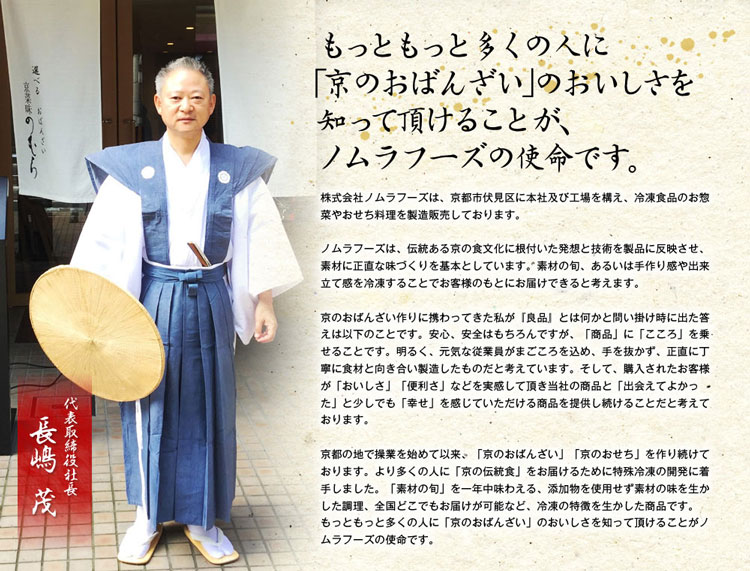 もっともっと多くの人に
「京のおばんざい」のおいしさを
知って頂けることが、
ノムラフーズの使命です。
株式会社ノムラフーズは、京都市伏見区に本社及び工場を構え、冷凍食品のお惣
菜やおせち料理を製造販売しております。
ノムラフーズは、伝統ある京の食文化に根付いた発想と技術を製品に反映させ、
素材に正直な味づくりを基本としています。素材の旬、あるいは手作り感や出来
立て感を冷凍することでお客様のもとにお届けできると考えます。
京のおばんざい作りに携わってきた私が『良品』とは何かと問い掛け時に出た答
えは以下のことです。安心、安全はもちろんですが、「商品」に「こころ」を乗
せることです。明るく、元気な従業員がまごころを込め、手を抜かず、正直に丁
寧に食材と向き合い製造したものだと考えています。そして、購入されたお客様
が「おいしさ」「便利さ」などを実感して頂き当社の商品と「出会えてよかっ
た」と少しでも「幸せ」を感じていただける商品を提供し続けることだと考えて
おります。
京都の地で操業を始めて以来、「京のおばんざい」「京のおせち」を作り続けて
おります。より多くの人に「京の伝統食」をお届けするために特殊冷凍の開発に着
手しました。「素材の旬」を一年中味わえる、添加物を使用せず素材の味を生か
した調理、全国どこでもお届けが可能など、冷凍の特徴を生かした商品です。
もっともっと多くの人に「京のおばんざい」のおいしさを知って頂けることがノ
ムラフーズの使命です。
選べる おばんざい
京菜味 のむら
代表取締役社長
長嶋 茂